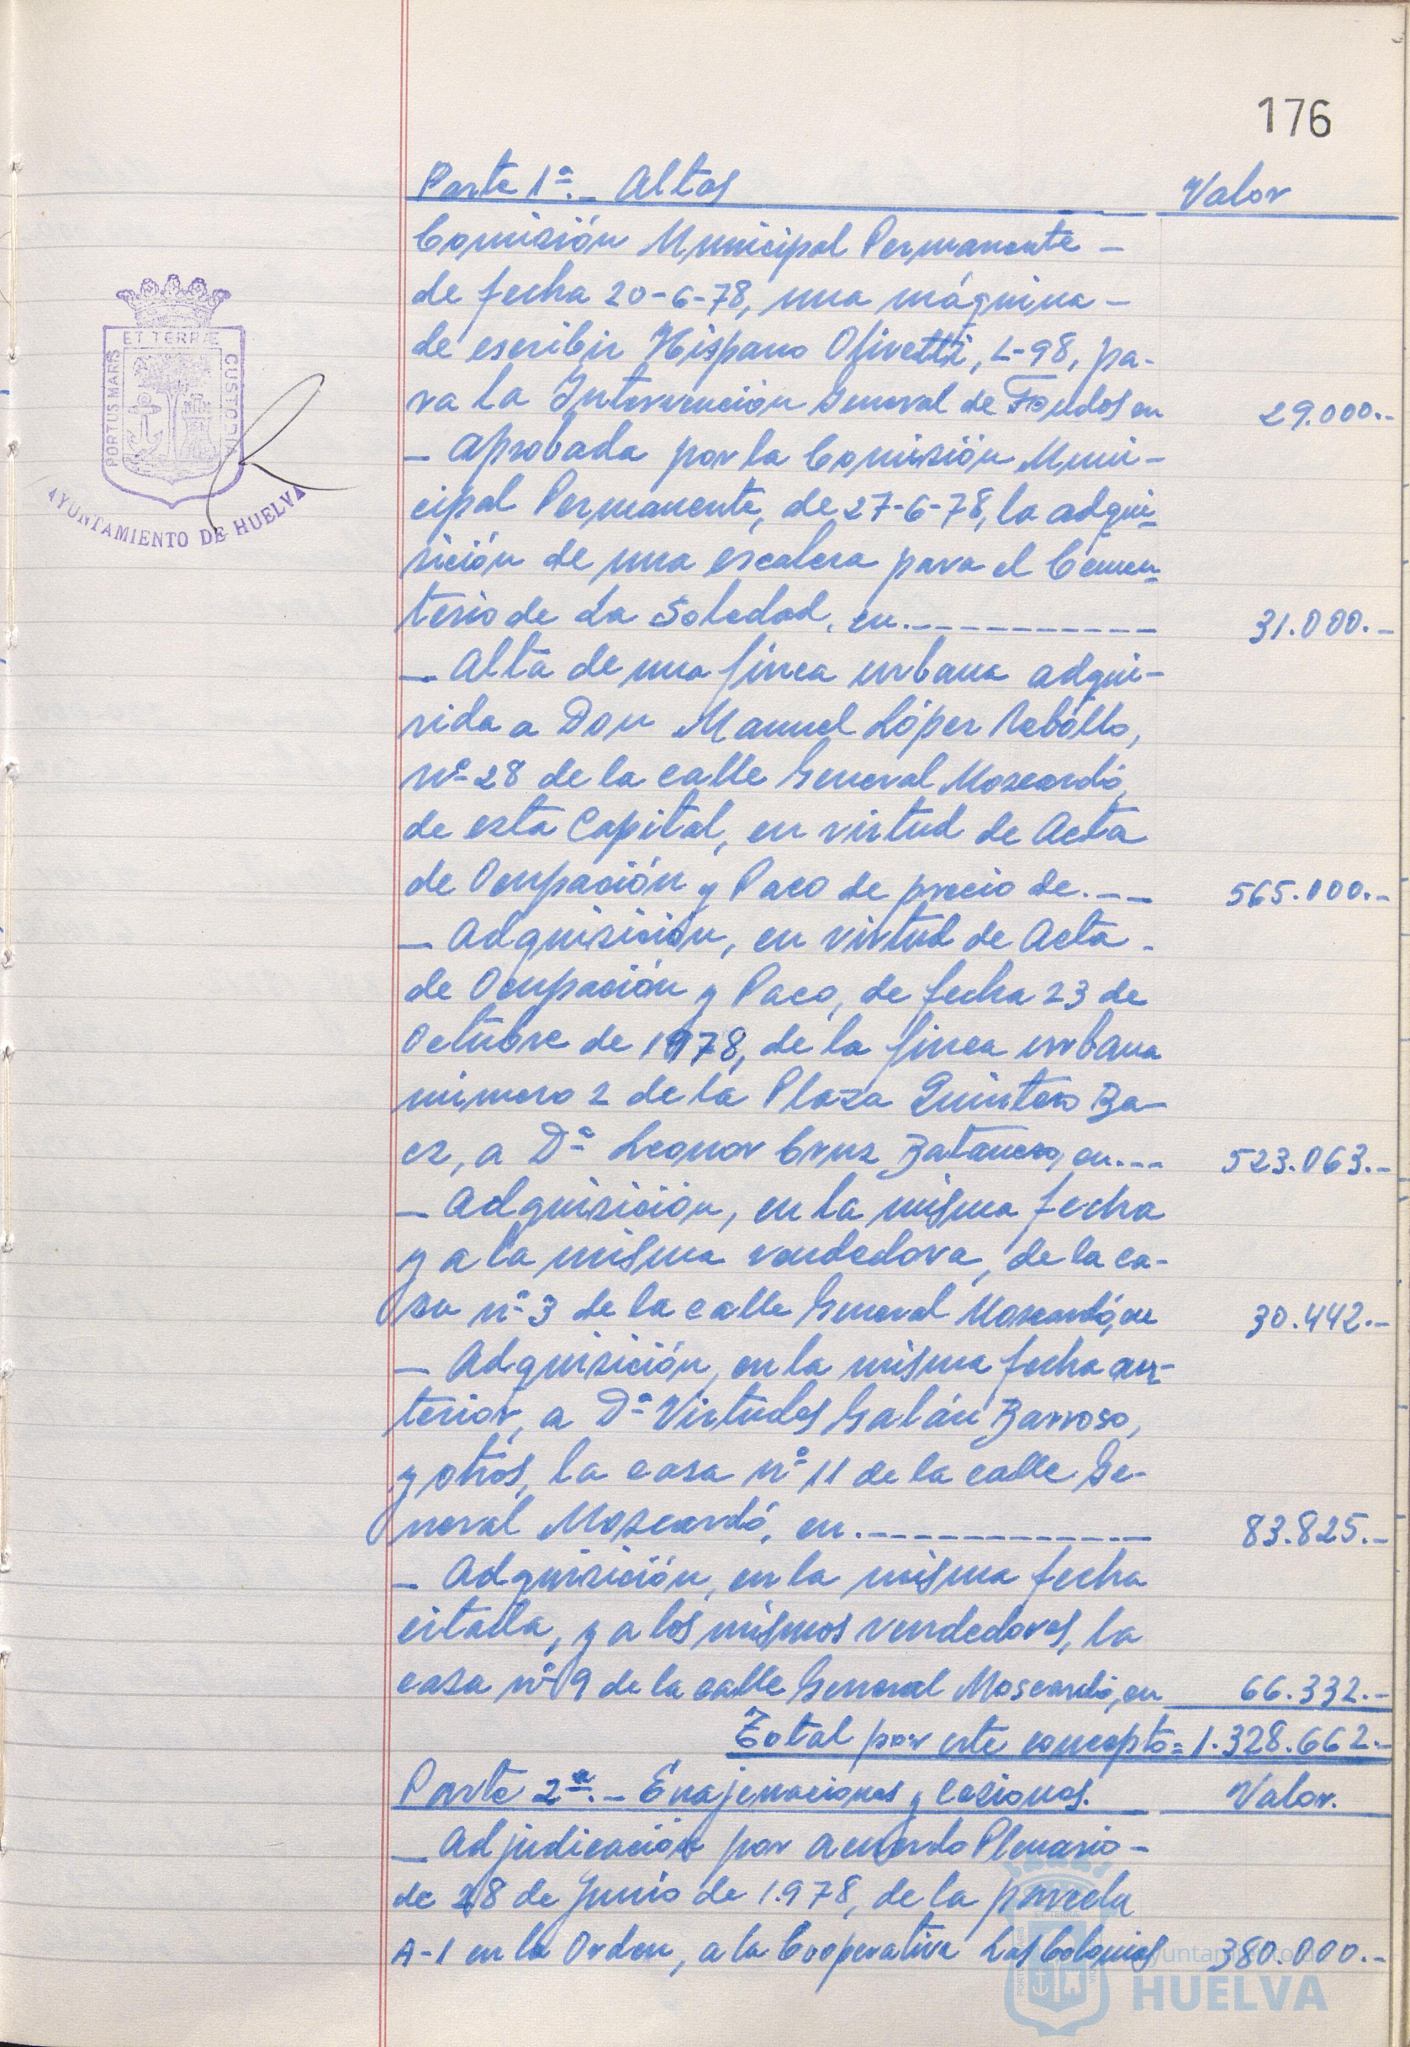 176
Parte 1ª.- Altas Valor
Comisión Municipal Permanente -
de fecha 20-6-78, una máquina -
de escribir Hispano Olivetti, L-98, pa-
ra la Intervención General de Fondos en 29.000.-
- Aprobada por la Comisión Muni-
cipal Permanente, de 27-6-78, la adqui-
sición de una escalera para el Cemen-
terio de La Soledad, en.---------- 31.000.-
- Alta de una finca urbana adqui-
rida a Don Manuel López Rebollo,
nº 28 de la calle General Moscardó,
de esta Capital, en virtud de Acta
de Ocupación y Paco de precio de.--- 565.000.-
- Adquisición, en virtud de Acta -
de Ocupación y Paco, de fecha 23 de
Octubre de 1978, de la finca urbana
número 2 de la Plaza Quintero Ba-
ez, a Dª Leonor Cruz Batanero, en.--- 523.063.-
- Adquisición, en la misma fecha
y a la misma vendedora, de la ca-
sa nº 3 de la calle General Moscardó, en 30.442.-
- Adquisición, en la misma fecha an-
terior, a Dª Virtudes Galán Barroso,
y otros, la casa nº 11 de la calle Ge-
neral Moscardó, en.------------ 83.825.-
- Adquisición, en la misma fecha
citada, y a los mismos vendedores, la
casa nº 9 de la calle General Moscardó, en 66.332.-
Total por este concepto = 1.328.662.-
Parte 2ª.- Enajenaciones y cesiones. Valor.
- Adjudicación por acuerdo Plenario -
de 28 de Junio de 1.978, de la parcela
A-1 en la Orden, a la Cooperativa Las Colonias 380.000.-
PORTUS MARIS ET TERRÆ CUSTODIA
AYUNTAMIENTO DE HUELVA
HUELVA